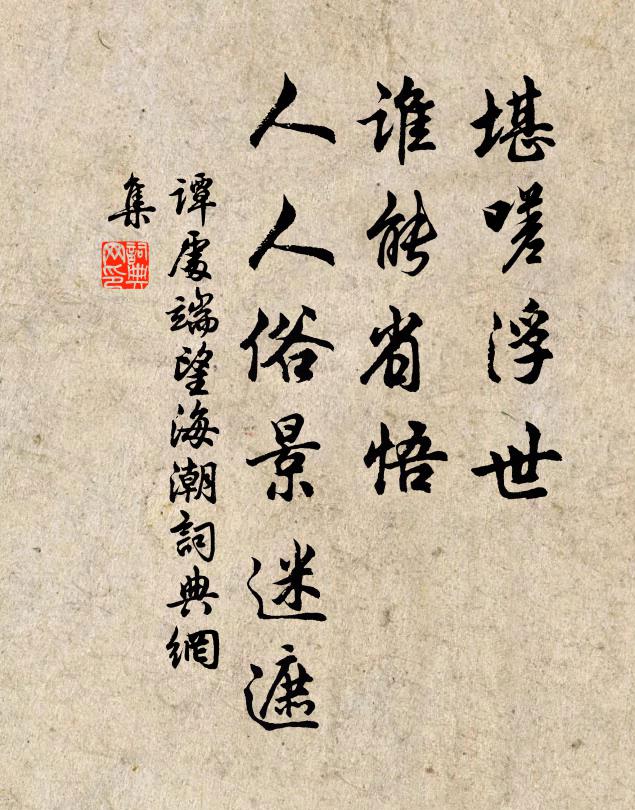 堪嗟浮世
誰能省悟
人人俗景迷遮
譚處端望海潮詞典網
集
詞典
网印